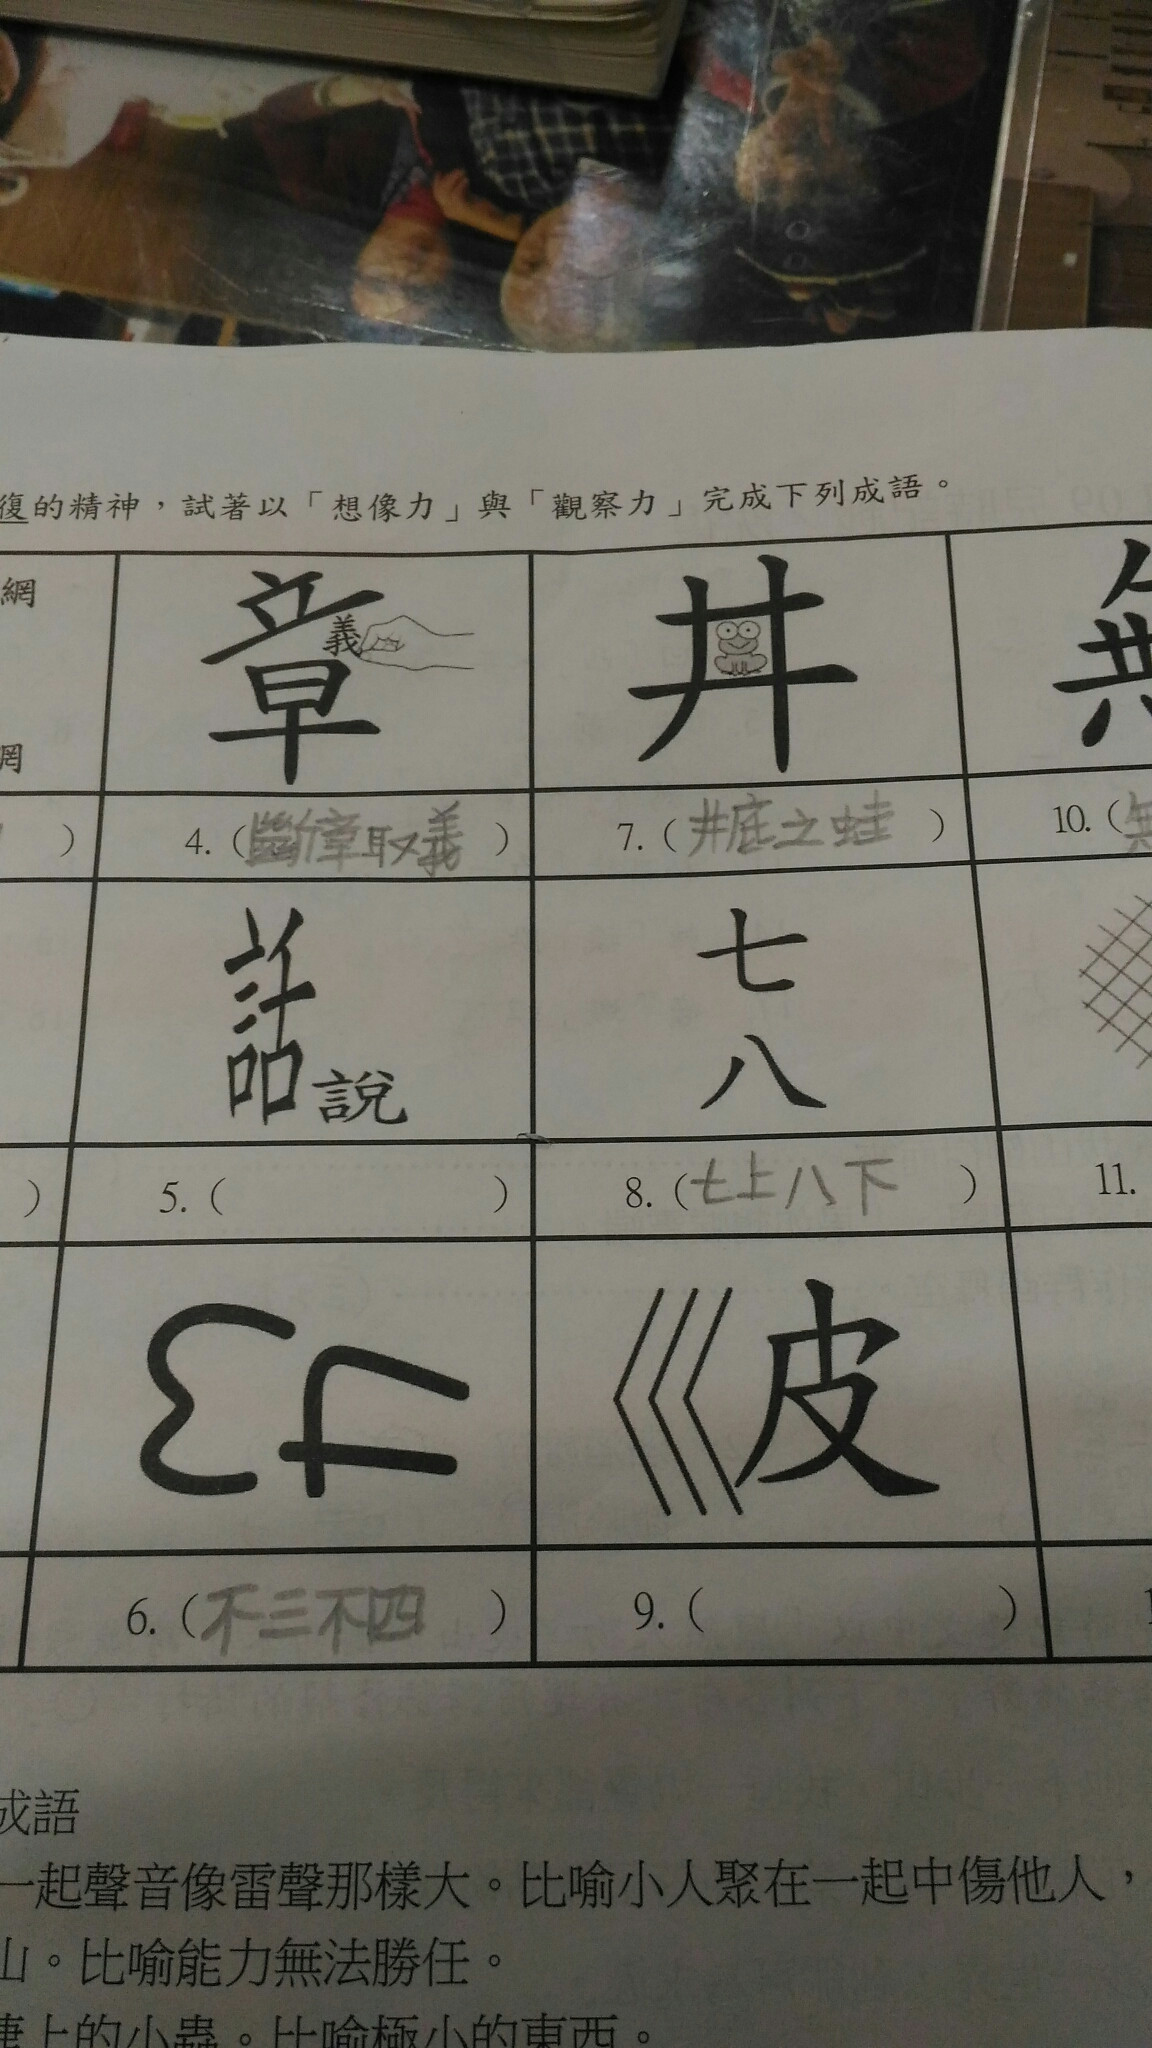 復的精神，試著以「想像力」與「觀察力」完成下列成語。
網
網
章
義
井
無
) 4. (斷章取義) 7. (井底之蛙) 10. (無
話
說
七
八
) 5. ( ) 8. (七上八下) 11.
3 4
皮
6. (不三不四) 9. ( ) 1
成語
一起聲音像雷聲那樣大。比喻小人聚在一起中傷他人，
山。比喻能力無法勝任。
上的小蟲。比喻極小的東西。